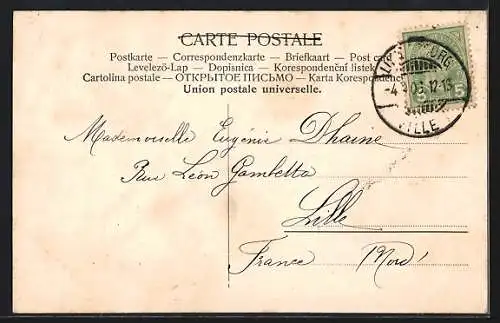 CARTE POSTALE
Postkarte — Correspondenzkarte — Briefkaart — Post
Levelező-Lap — Dopisnica — Korespondenční listek
Cartolina postale — ОТКРЫТОЕ ПИСЬМО — Karta Korespondenc
Union postale universelle.
5
VILLE
Mademoiselle Eugénie Dhaine
Rue Léon Gambetta
Lille
France (Nord)